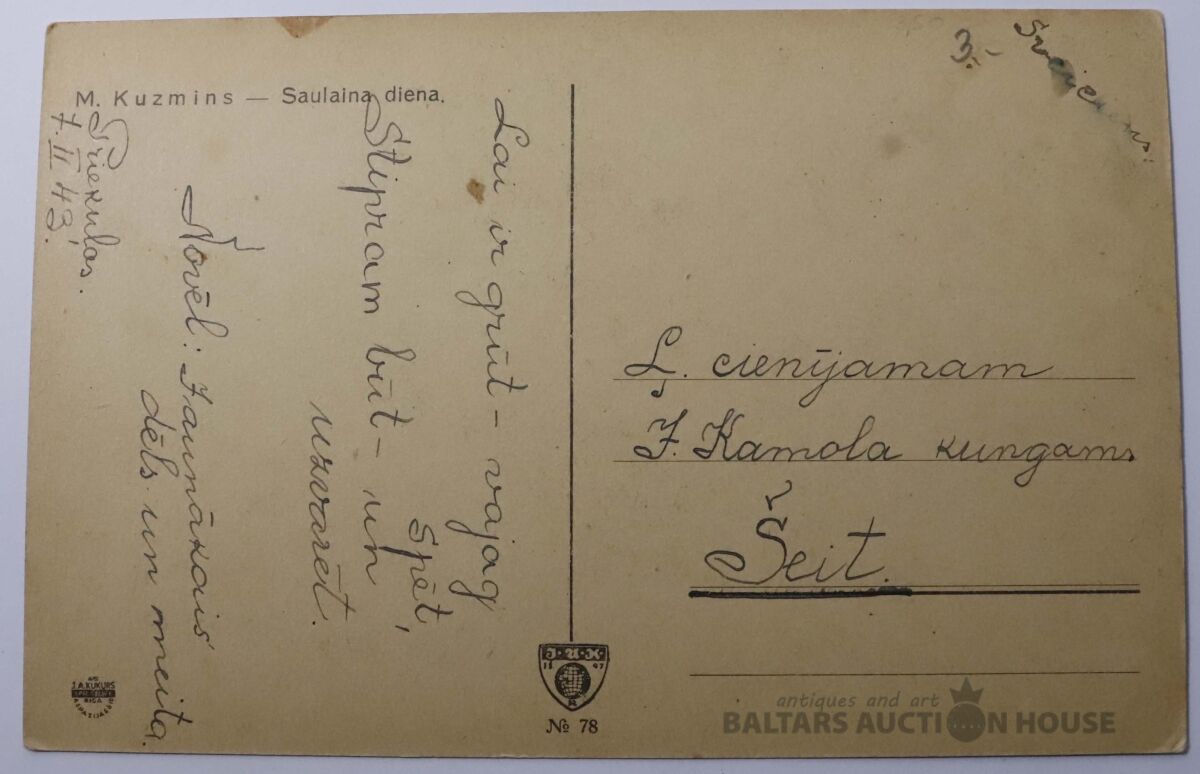 M. Kuzmins — Saulaina diena.
Priekuļos.
7. II 43.
Lai ir grūt – vajag
spēt,
Stipram būt – un
uzvarēt.
Novēl: Jaunākais
dēls un meita.
3.-
Ļ. cienījamam
J. Kamola kungam.
Šeit.
J.A.KUKURS
RIGA
J.A.K
18 97
№ 78
antiques and art
BALTARS AUCTION HOUSE